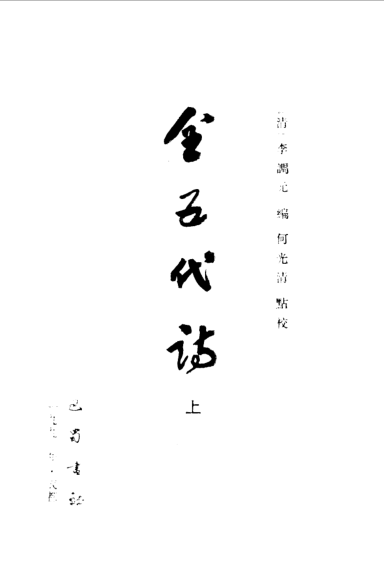 [清]李調元 編 何光清 點校
全五代詩
上
巴蜀書社